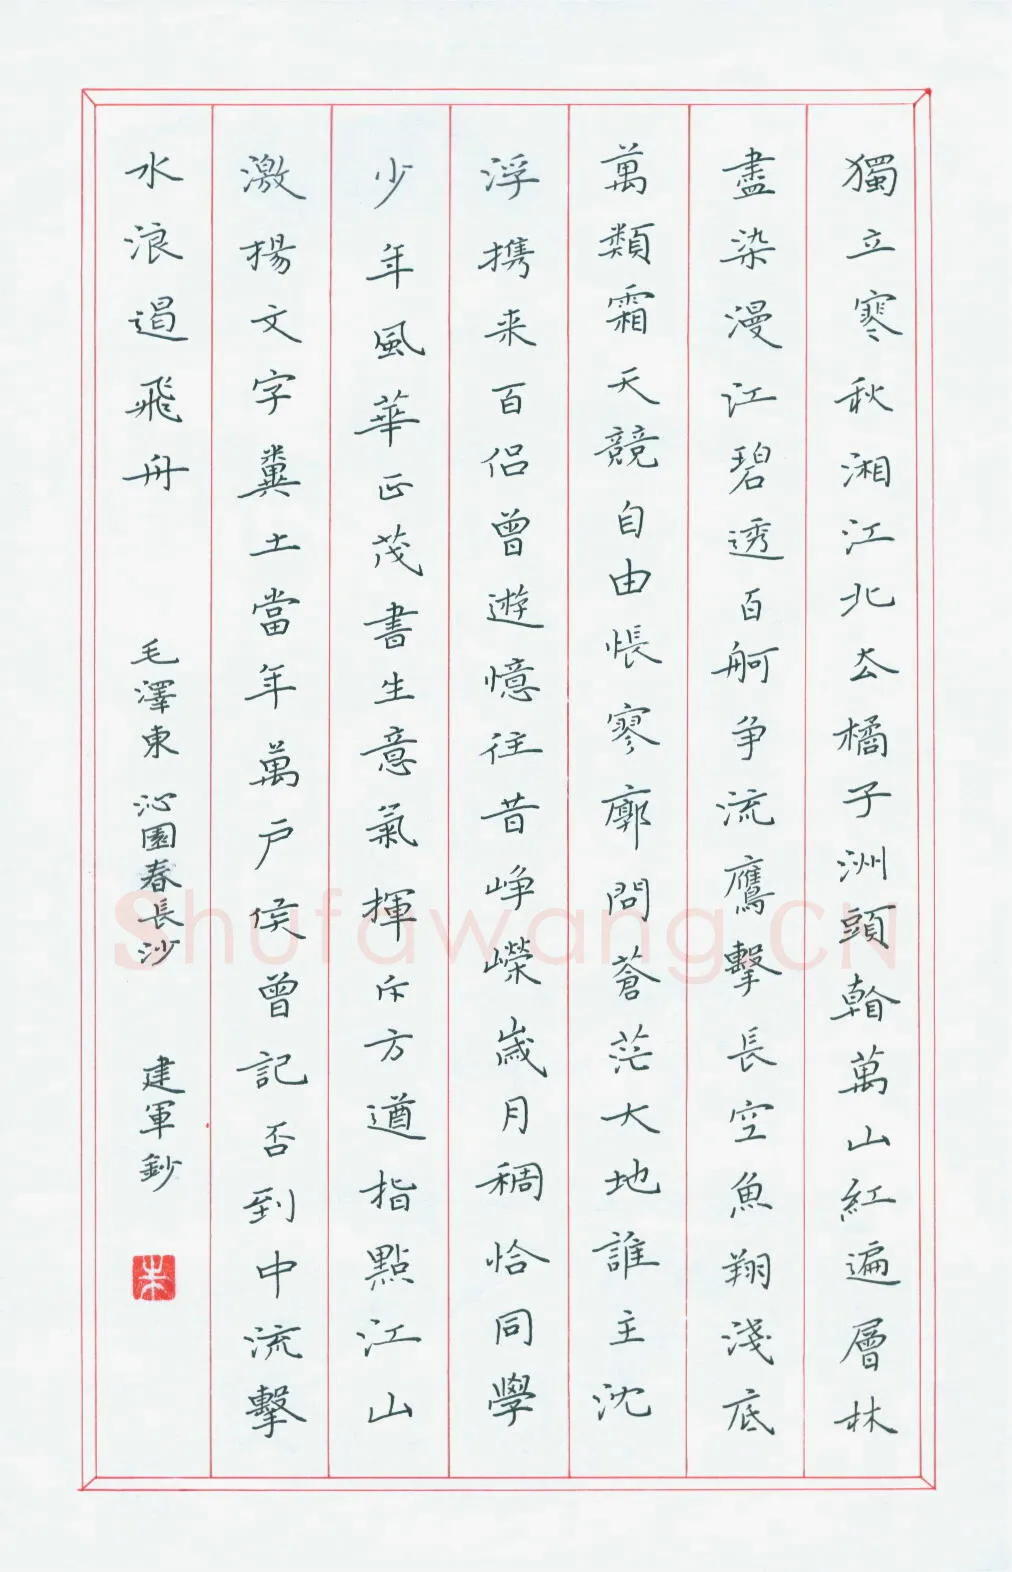 獨立寒秋湘江北去橘子洲頭看萬山紅遍層林
盡染漫江碧透百舸争流鷹擊長空魚翔淺底
萬類霜天競自由悵寥廓問蒼茫大地誰主沈
浮攜来百侣曾遊憶往昔崢嶸歲月稠恰同學
少年風華正茂書生意氣揮斥方遒指點江山
激揚文字糞土當年萬户侯曾記否到中流擊
水浪遏飛舟
毛澤東 沁園春長沙
建軍鈔
朱
Shufawang.CN